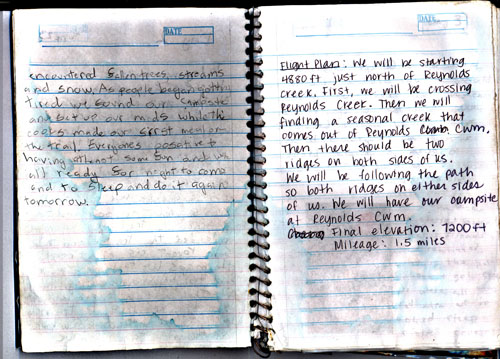 DATE
encountered fallen trees, streams
and snow. As people began getting
tired we found our campsite
and set up our mids while the
cooks made our first meal on
the trail. Everyone's positive to
having at least some fun and we
all ready for night to come
and to sleep and do it again
tomorrow.
DATE
Flight Plan: We will be starting
4880ft just north of Reynolds
Creek. First, we will be crossing
Reynolds Creek. Then we will
finding a seasonal creek that
comes out of Reynolds Cwm.
Then there should be two
ridges on both sides of us.
We will be following the path
so both ridges on either sides
of us. We will have our campsite
at Reynolds Cwm.
Final elevation: 7200ft
Mileage: 1.5 miles